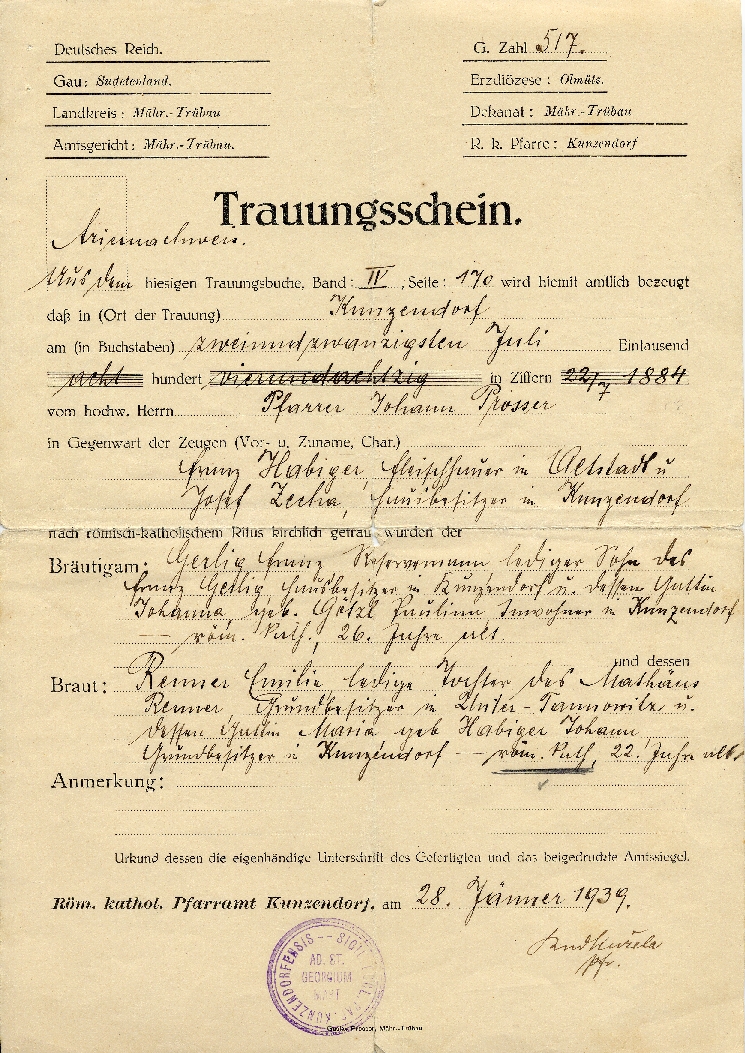 Deutsches Reich.
G. Zahl 517.
Gau: Sudetenland.
Erzdiözese: Olmütz.
Landkreis: Mähr.-Trübau
Dekanat: Mähr.-Trübau
Amtsgericht: Mähr.-Trübau.
R. k. Pfarre: Kunzendorf
Trauungsschein.
Ariernachweis.
Aus dem hiesigen Trauungsbuche, Band: IV, Seite: 170 wird hiemit amtlich bezeugt
daß in (Ort der Trauung) Kunzendorf
am (in Buchstaben) zweiundzwanzigsten Juli Eintausend
acht hundert vierundachtzig in Ziffern 22/7 1884
vom hochw. Herrn Pfarrer Johann Prosser
in Gegenwart der Zeugen (Vor- u. Zuname, Char.)
Franz Habiger, Fleischhauer in Altstadt u
Josef Zecha, Hausbesitzer in Kunzendorf
nach römisch-katholischem Ritus kirchlich getraut wurden der
Bräutigam: Gerlig Franz Reservemann lediger Sohn des
Franz Gerlig, Hausbesitzer in Kunzendorf u. dessen Gattin
Johanna, geb. Götzl Paulina Inwohner in Kunzendorf
röm. kath., 26. Jahre alt
und dessen
Braut: Renner Emilie ledige Tochter des Mathäus
Renner Grundbesitzer in Unter-Tannowitz u.
dessen Gattin Maria geb Habiger Johann,
Grundbesitzer in Kunzendorf -- röm. kath, 22. Jahre alt
Anmerkung:
Urkund dessen die eigenhändige Unterschrift des Gefertigten und das beigedruckte Amtssiegel.
Röm. kathol. Pfarramt Kunzendorf, am 28. Jänner 1939.
Pfr.
KUNZENDORFENSIS
AD. ST.
GEORGIUM
MART
Gustav Prosser, Mähr.-Trübau